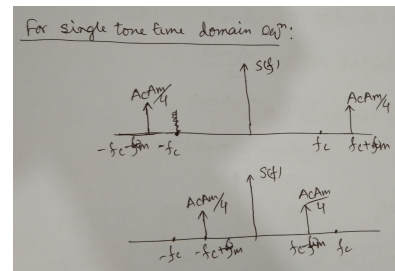 For single tone time domain eqⁿ:
S(f)
AcAm/4 AcAm/4
-fc-fm -fc fc fc+fm
S(f)
AcAm/4 AcAm/4
-fc -fc+fm fc-fm fc